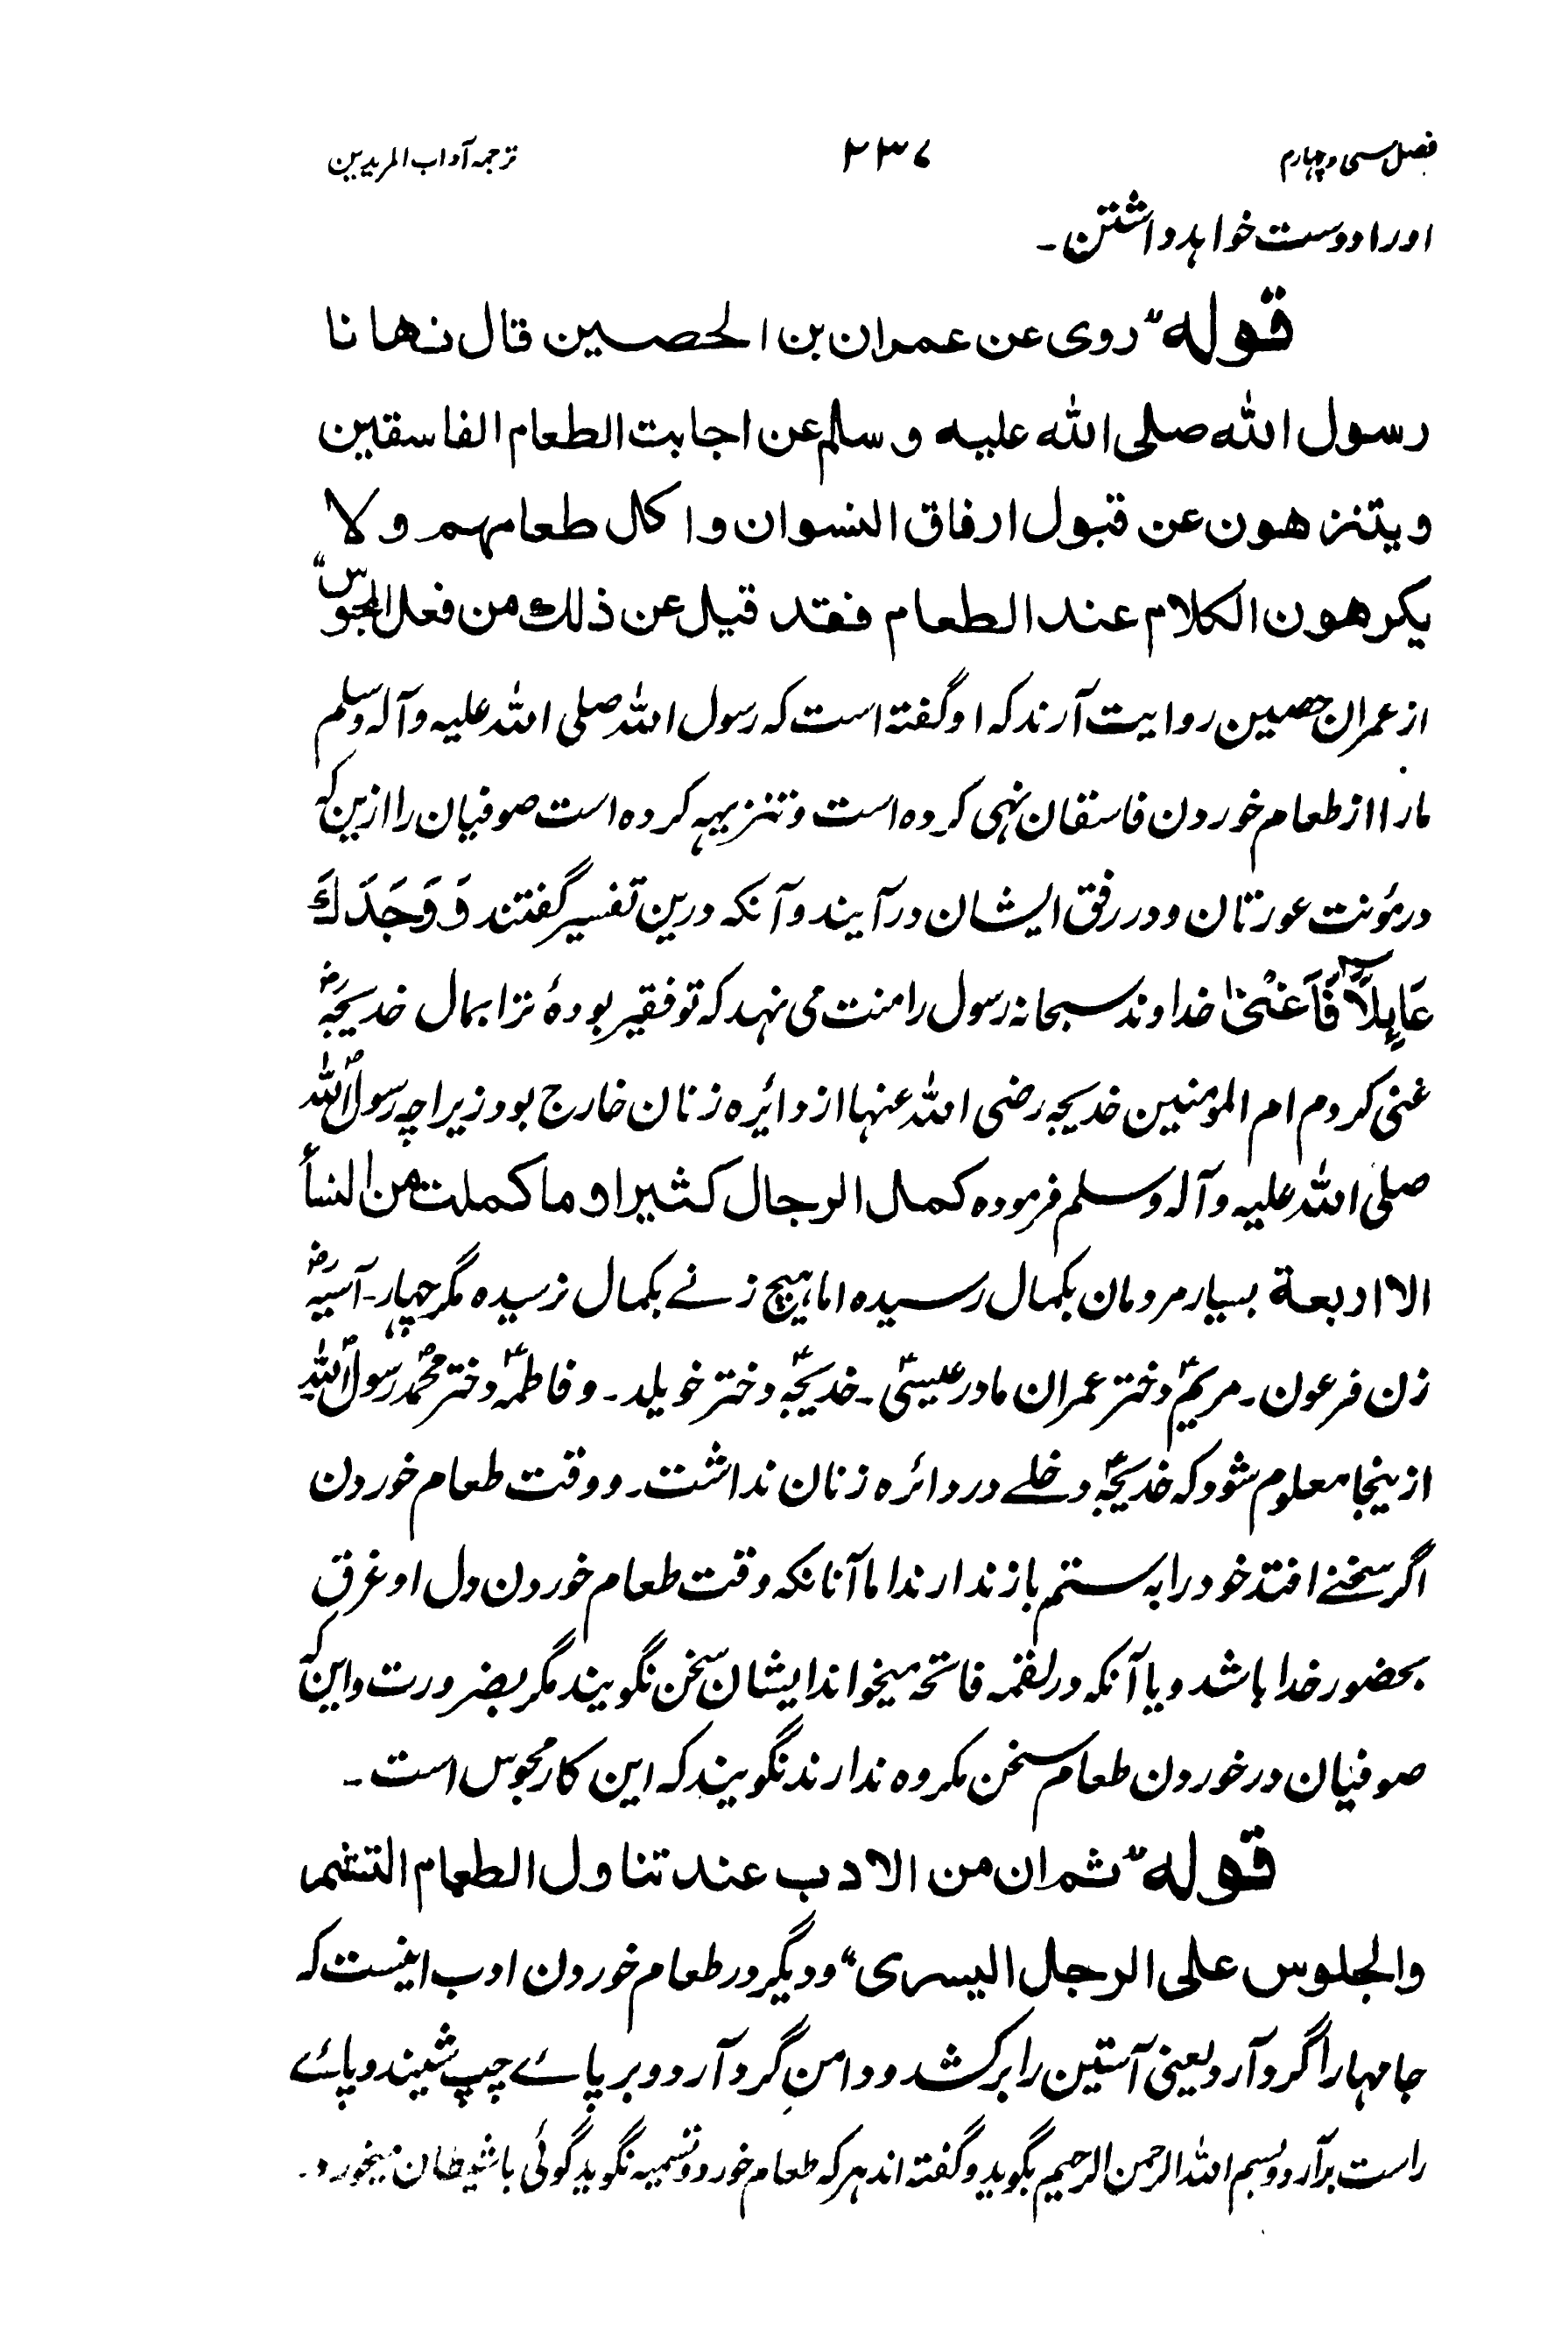 فصل سی و چهارم ۲۳۷ ترجمه آداب المریدین
اورا دوست خواهد داشتن۔
قوله "روی عن عمران بن الحصین قال نهانا
رسول الله صلی الله علیه و سلم عن اجابت الطعام الفاسقین
و یتنزهون عن قبول ارفاق النسوان و اکل طعامهم و لا
یکرهون الکلام عند الطعام فقد قیل عن ذلك من فعل المجوس"
از عمران حصین روایت آرند که او گفته است که رسول الله صلی الله علیه و آله وسلم
مارا از طعام خوردن فاسقان نهی کرده است و تنزیهه کرده است صوفیان را ازین که
در مؤنت عورتان و در رفق ایشان در آیند و آنکه درین تفسیر گفتند وَ وَجَدَكَ
عَآىِٕلًا فَاَغْنٰی خداوند سبحانه رسول را منت می نهد که تو فقیر بودهٔ ترا بمال خدیجهؓ
غنی کردم ام المومنین خدیجه رضی الله عنها از دائره زنان خارج بود زیرا چه رسول اللهؐ
صلی الله علیه و آله وسلم فرموده کمال الرجال کثیرا و ما کملت من النسأ
الا اربعة بسیار مردمان بکمال رسیده اما هیچ زنے بکمال نرسیده مگر چهار۔ آسیهؓ
زن فرعون۔ مریمؑ دختر عمران مادر عیسیؑ۔ خدیجهؑ دختر خویلد۔ و فاطمهؑ دختر محمدؐ رسول اللهؐ
ازینجا معلوم شود که خدیجهؑ دخلے در دائره زنان نداشت۔ و وقت طعام خوردن
اگر سخنے افتد خود را به ستم باز ندارند اما آنانکه وقت طعام خوردن دل او غرقِ
بحضور خدا باشد و یا آنکه در لقمه فاتحه میخواند ایشان سخن نگویند مگر بضرورت و این که
صوفیان در خوردن طعام سخن مکروه ندارند نگویند که این کار مجوس است۔
قوله "ثم ان من الادب عند تناول الطعام التشمر
والجلوس علی الرجل الیسری" و دیگر در طعام خوردن ادب اینست که
جامهارا گرد آرد یعنی آستین را برکشد و دامن گرد آرد و بر پاے چپ شیند و پاے
راست برآرد و بسم الله الرحمن الرحیم بگوید و گفته اند هر که طعام خورد و تسمیه نگوید گوئی با شیطان میخورد۔